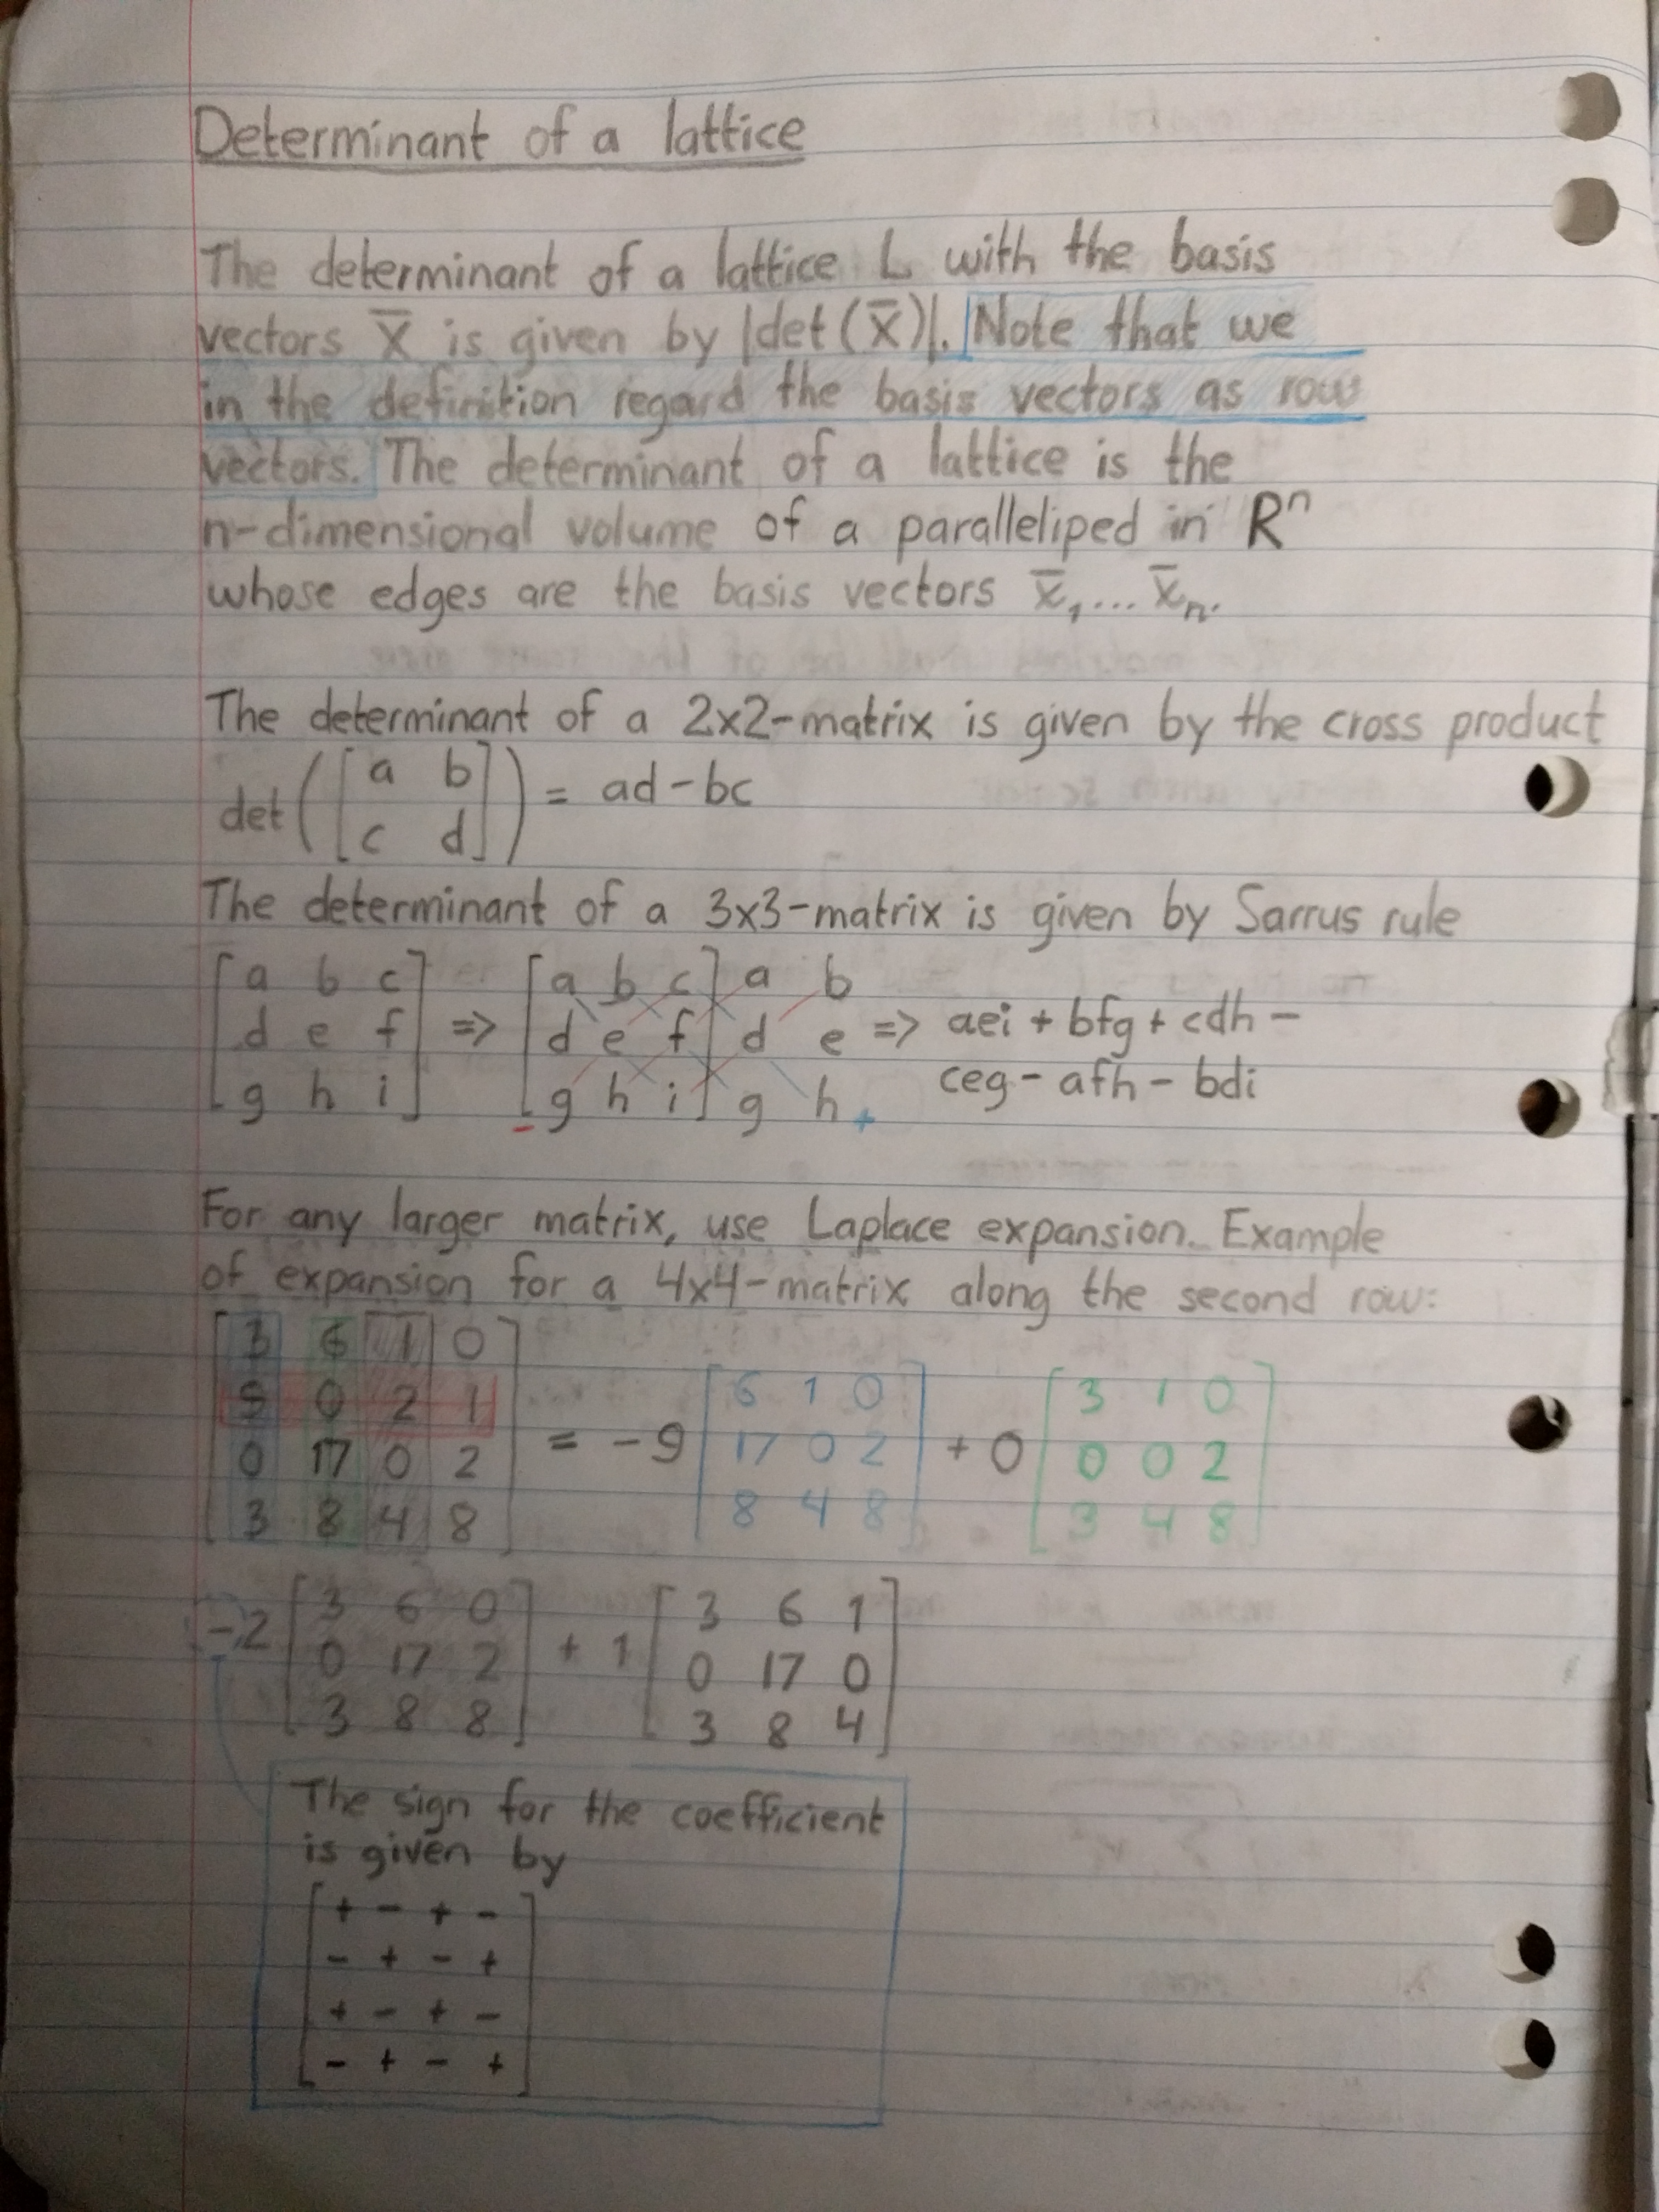 Determinant of a lattice
The determinant of a lattice L with the basis
vectors X̅ is given by |det(X̅)|. Note that we
in the definition regard the basis vectors as row
vectors. The determinant of a lattice is the
n-dimensional volume of a paralleliped in Rⁿ
whose edges are the basis vectors x̅₁... x̅ₙ.
The determinant of a 2x2-matrix is given by the cross product
det([a b
c d]) = ad-bc
The determinant of a 3x3-matrix is given by Sarrus rule
[a b c] [a b c] a b
[d e f] => [d e f] d e => aei + bfg + cdh -
[g h i] [g h i] g h ceg - afh - bdi
- +
For any larger matrix, use Laplace expansion. Example
of expansion for a 4x4-matrix along the second row:
[3 6 1 0]
[9 0 2 1] [6 1 0] [3 1 0]
[0 17 0 2] = -9 [17 0 2] + 0 [0 0 2]
[3 8 4 8] [8 4 8] [3 4 8]
[3 6 0] [3 6 1]
-2 [0 17 2] + 1 [0 17 0]
[3 8 8] [3 8 4]
The sign for the coefficient
is given by
[+ - + -]
[- + - +]
[+ - + -]
[- + - +]